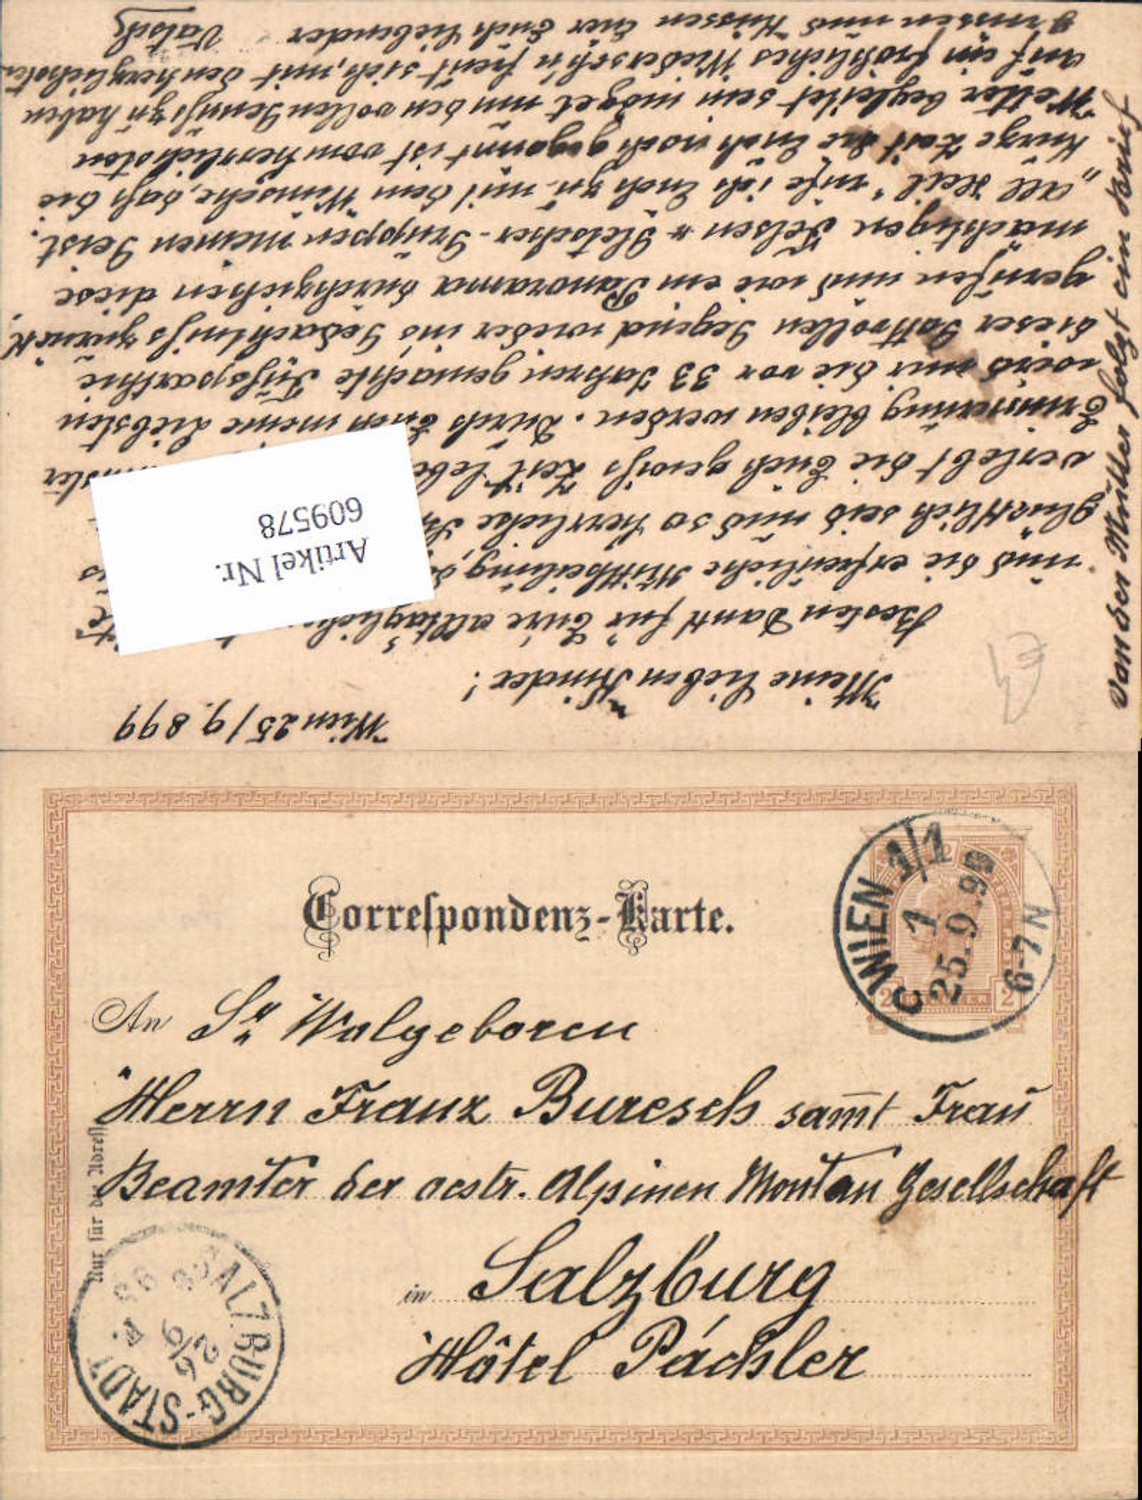 Wien 25/9. 899
Meine lieben Kinder!
Besten Dank für Eure alltägliche
und die erfreuliche Mittheilung,
glücklich seid und so herrliche
verlebt die Euch gewiss Zeit
Erinnerung bleiben werden. Durch Euch meine Liebsten
wird mir die vor 33 Jahren gemachte Fußparthie
dieser Gottvollen Gegend wieder ins Gedächtniß zurück
gerufen und wie ein Panorama durchziehen diese
mächtigen Felsen u Gletscher-Gruppen meinen Geist.
"All Heil" rufe ich Euch zu mit dem Wunsche, daß die
kurze Zeit die Euch noch gegönnt ist vom herrlichsten
Wetter begleitet sein möget um den vollen Genuß zu haben
auf ein fröhliches Wiederseh'n freut sich, mit den herzlichsten
Grüssen und Küssen Euer Euch liebender Vater
von der Mutter folgt ein Brief
Artikel Nr.
609578
4€
Correspondenz-Karte.
C WIEN 1/1
1
25.9.99
6-7 N
2 2
An Sr Wolgeboren
Herrn Franz Buresch sam̅t Frau
Beamter der oestr. Alpinen Montan Gesellschaft
in Salzburg
Hôtel Pächler
Nur für die Adresse
SALZBURG-STADT
26/9
99